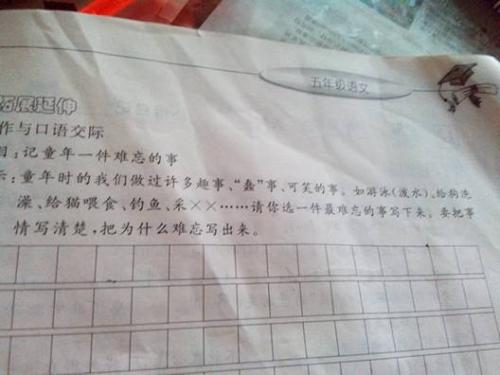 五年级语文
拓展延伸
作与口语交际
目：记童年一件难忘的事
示：童年时的我们做过许多趣事、“蠢”事、可笑的事。如游泳(泼水)、给狗洗
澡、给猫喂食、钓鱼、采××……请你选一件最难忘的事写下来。要把事
情写清楚，把为什么难忘写出来。